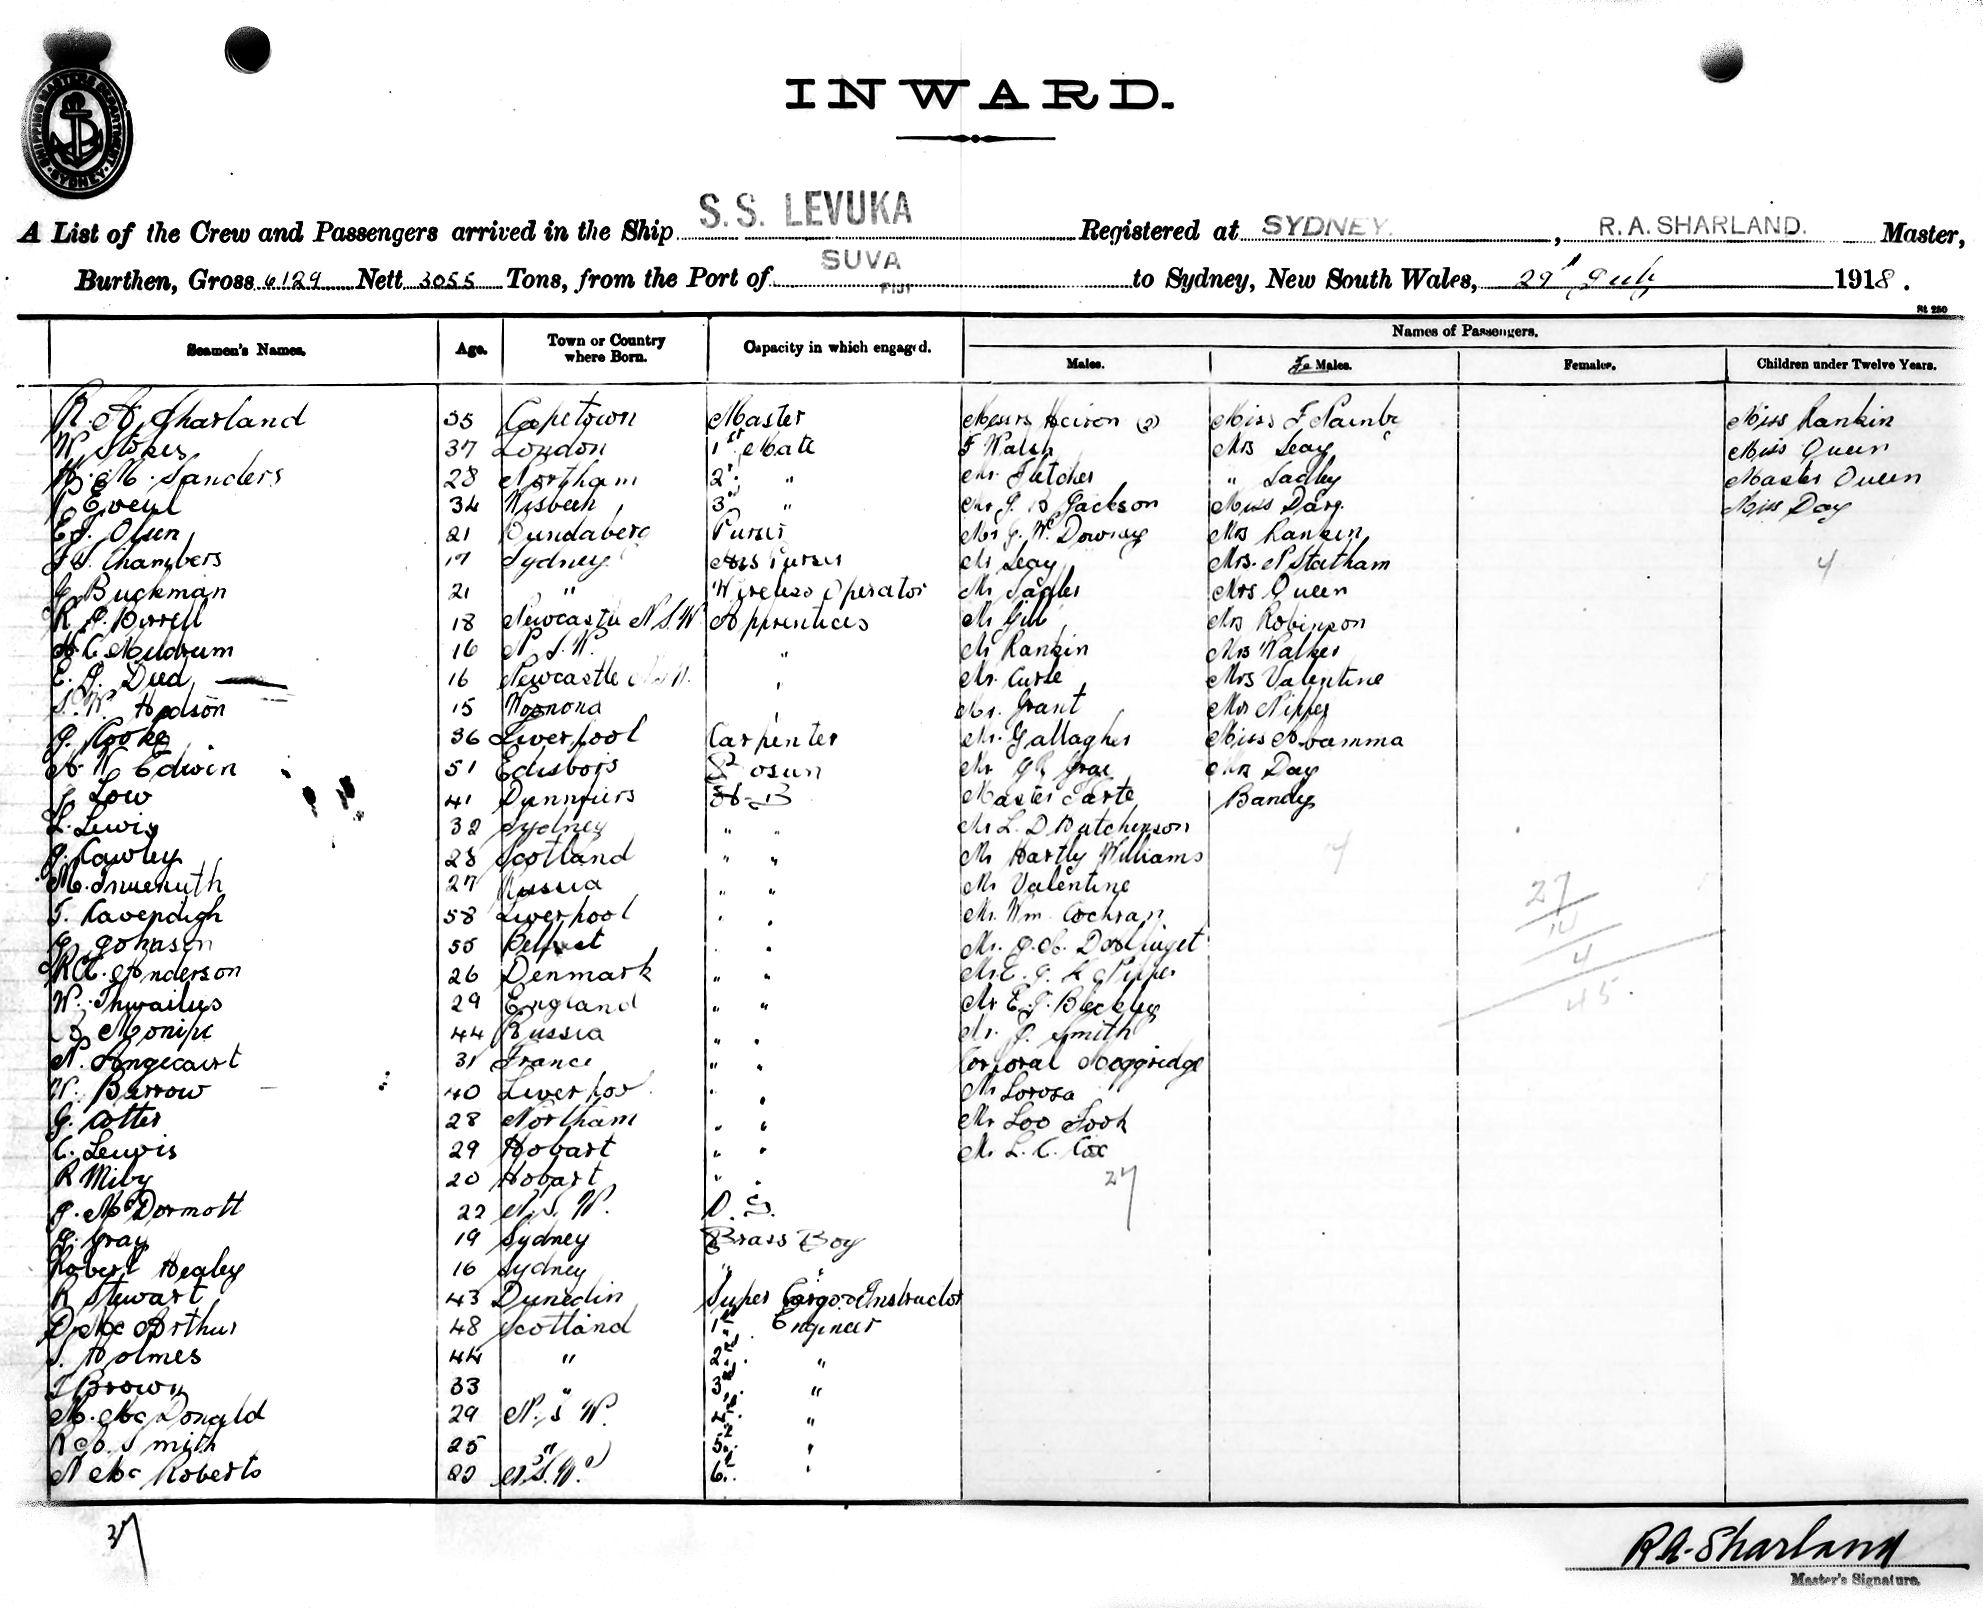 SHIPPING MASTERS DEPARTMENT
SYDNEY
INWARD.
A List of the Crew and Passengers arrived in the Ship S.S. LEVUKA Registered at SYDNEY. , R.A. SHARLAND. Master,
Burthen, Gross 6129 Nett 3055 Tons, from the Port of SUVA FIJI to Sydney, New South Wales, 29 July 1918.
St 250
Seamen's Names. Age. Town or Country where Born. Capacity in which engaged. Names of Passengers.
Males. Fe Males. Females. Children under Twelve Years.
R. A. Sharland 35 Capetown Master Messrs Heiron (2) Miss F Miss Rankin
W. Stokes 37 London 1st Mate F Walsh Mrs Seay Miss Queen
H. M. Sanders 28 Northam 2nd " Mr. Fletcher " Sadley Master Queen
34 Wisbech 3rd " Mr G. B Jackson Miss Darg. Miss Day
E. J. Olsen 21 Bundaberg Purser Mr G. W. Downey Mrs Rankin
J. S. Chambers 17 Sydney Ass Purser Mr Seay Mrs. N Statham 4
G. Buckman 21 " Wireless Operator Mr Mrs Queen
R. J. Birrell 18 Newcastle N.S.W. Apprentices Mr Gill Mrs Robinson
H. C. Meldrum 16 N.S.W. " Mr Rankin Mrs Walker
E. J. Died 16 Newcastle N.S.W. " Mr. Curse Mrs Valentine
S. W. Hodson 15 Woonona " Mr. Grant Mrs Pipper
G. Rooke 36 Liverpool Carpenter Mr. Gallagher Miss
A. W. Edwin 51 Bosun Mr Gray Mrs Day
J. Low 41 Dumfriers A-B Master Tarte Bandy
L. Lewis 32 Sydney " " Mr L. D Hutchinson
J. Cawley 28 Scotland " " Mr Hartly Williams
M. 27 Russia " " Mr Valentine
T. Cavendish 58 Liverpool " " Mr. Wm. Cochran 27
G. Johnson 55 Belfast " " Mr. 14
R. C. Anderson 26 Denmark " " Mr E. J. Pipper 4
W. Thwaites 29 England " " Mr E. J. Bleckly 45.
44 Russia " " Mr. J. Smith
N. Angecairt 31 France " " Corporal Moggridge
W. Barrow 40 Liverpool " " Mr Lorosa
G. Cotter 28 Northam " " Mr Loo Look
C. Lewis 29 Hobart " " Mr. L. C. Cox
R Milby 20 Hobart " " 27
J. McDormott 22 N.S.W. O.S.
G. Gray 19 Sydney Brass Boy
Robert Healey 16 Sydney " "
R Stewart 43 Dunedin Super Cargo & Instructor
D. McArthur 48 Scotland 1st Engineer
J. Holmes 44 " 2nd "
J Brown 33 " 3rd "
M. McDonald 29 N.S.W. 4th "
R. Smith 25 " 5th "
N McRoberts 22 N.S.W. 6th "
37
R.A. Sharland
Master's Signature.